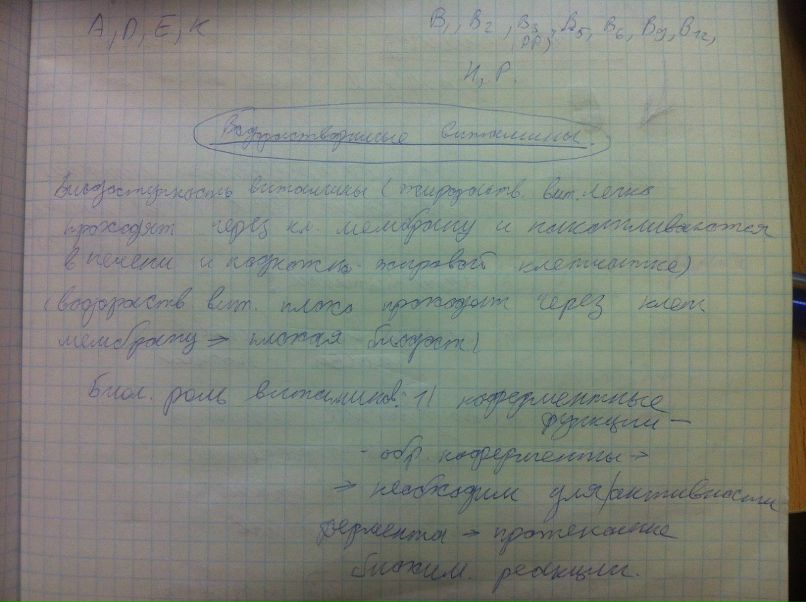 A, D, E, K
B1, B2, B3, B5, B6, B9, B12,
(PP)
H, P.
Водорастворимые витамины.
Биодоступность витамины (жирораств. вит. легко
проходят через кл. мембрану и накапливаются
в печени и подкожно-жировой клетчатке)
(водораств вит. плохо проходят через клет
мембрану → плохая биодост)
Биол. роль витаминов: 1) коферментные
функции –
- обр. коферменты →
→ необходим для активности
фермента → протекание
биохим. реакции.